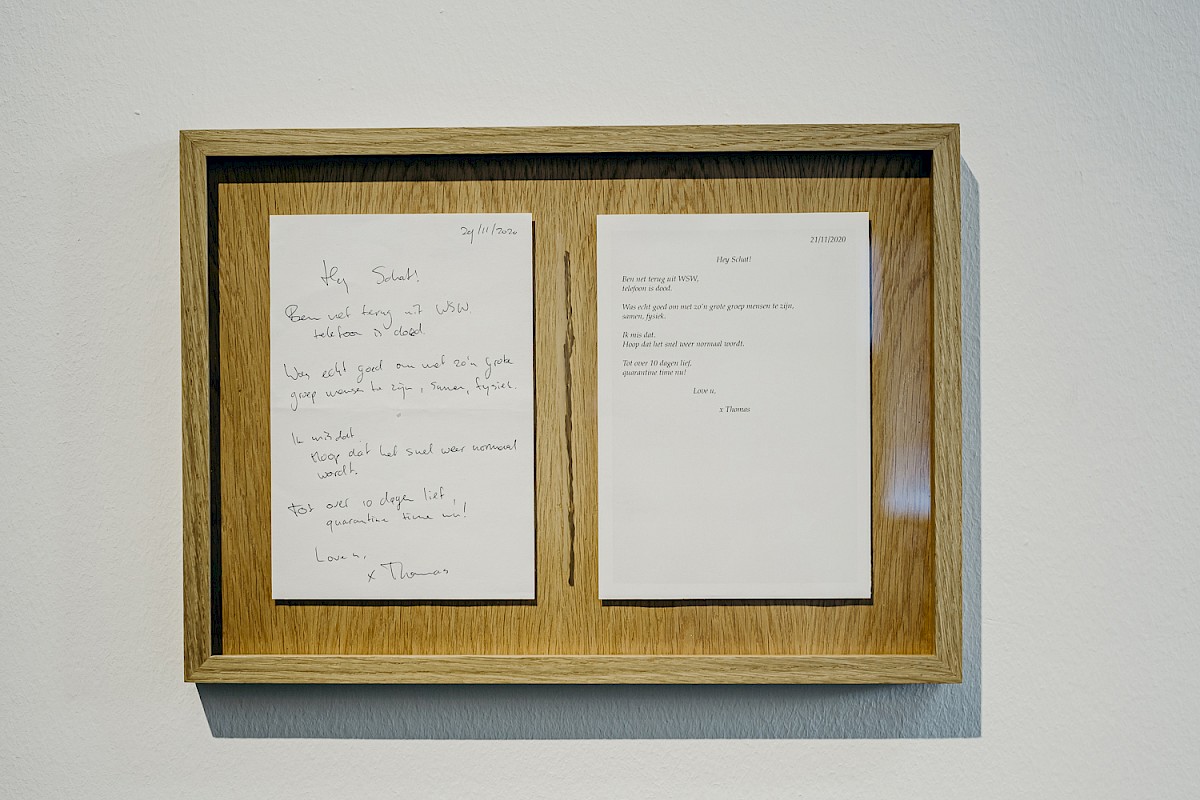 29/11/2020
Hey Schat!
Ben net terug uit WSW,
telefoon is dood.
Was echt goed om met zo'n grote
groep mensen te zijn, samen, fysiek.
Ik mis dat.
Hoop dat het snel weer normaal
wordt.
Tot over 10 dagen lief,
quarantine time nu!
Love u,
x Thomas
21/11/2020
Hey Schat!
Ben net terug uit WSW,
telefoon is dood.
Was echt goed om met zo'n grote groep mensen te zijn,
samen, fysiek.
Ik mis dat.
Hoop dat het snel weer normaal wordt.
Tot over 10 dagen lief,
quarantine time nu!
Love u,
x Thomas